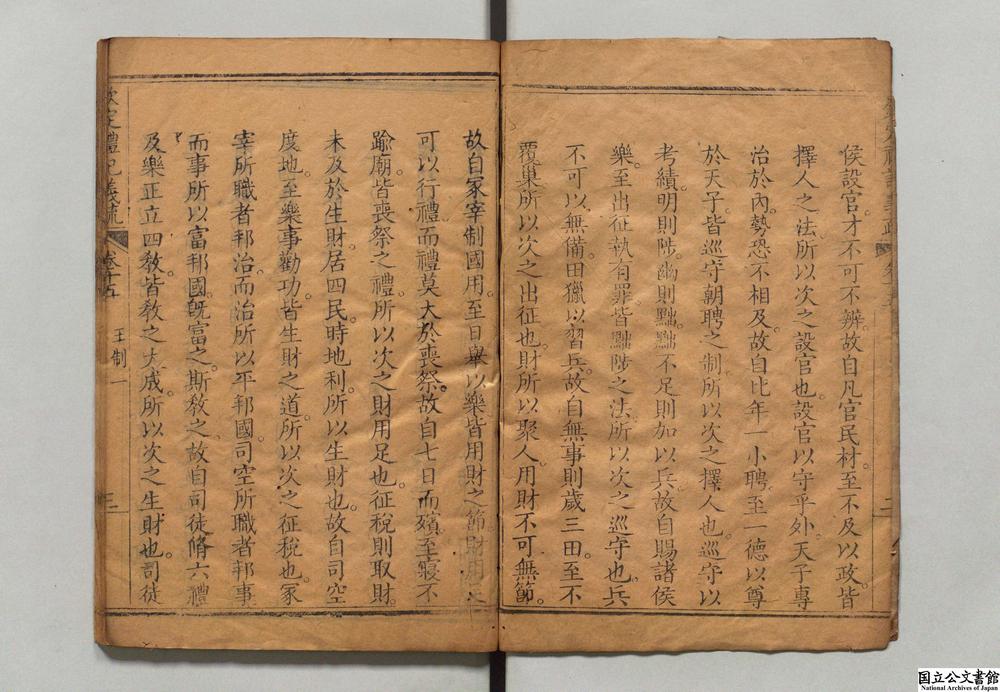 侯設官才不可不辨故自凡官民材至不及以政皆
擇人之法所以次之設官也設官以守乎外天子專
治於內勢恐不相及故自比年一小聘至一德以尊
於天子皆巡守朝聘之制所以次之擇人也巡守以
考績明則陟幽則黜黜不足則加以兵故自賜諸侯
樂至出征執有罪皆黜陟之法所以次之巡守也兵
不可以無備田獵以習兵故自無事則歲三田至不
覆巢所以次之出征也財所以聚人用財不可無節
故自冢宰制國用至日舉以樂皆用財之節財用足
可以行禮而禮莫大於喪祭故自七日而殯至寢不
踰廟皆喪祭之禮所以次之財用足也征稅則取財
未及於生財居四民時地利所以生財也故自司空
度地至樂事勸功皆生財之道所以次之征稅也冢
宰所職者邦治而治所以平邦國司空所職者邦事
而事所以富邦國既富之斯敎之故自司徒脩六禮
及樂正立四敎皆敎之大成所以次之生財也司徒
欽定禮記義疏 卷十五 王制一 三
国立公文書館
National Archives of Japan